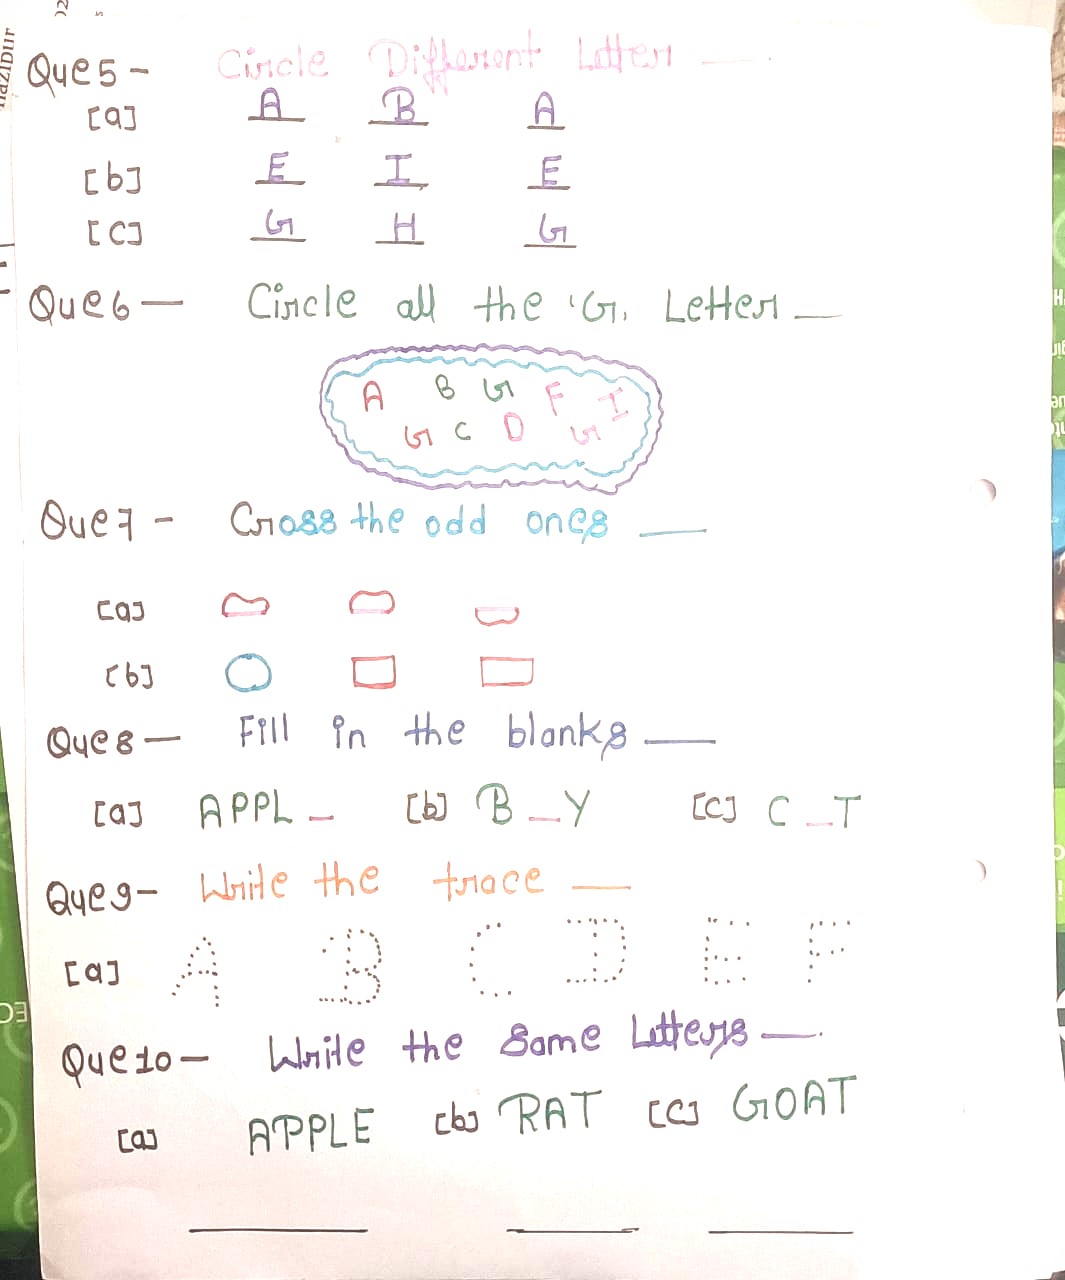 Que 5 - Circle Different Letter —
[a] A B A
[b] E I E
[c] G H G
Que 6 — Circle all the 'G' Letter —
A B G F I
G C D G
Que 7 - Cross the odd ones —
[a]
[b]
Que 8 — Fill in the blanks —
[a] APPL_ [b] B_Y [c] C_T
Que 9 - Write the trace —
[a] A B C D E F
Que 10 — Write the same Letters —
[a] APPLE [b] RAT [c] GOAT